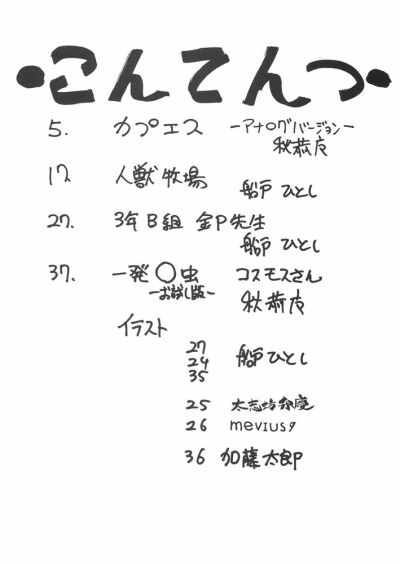 •こんてんつ•
5. カプエス -アナログバージョン-
秋恭度
17. 人獣牧場 船戸ひとし
27. 3年B組 金P先生
船戸ひとし
37. 一発〇虫 コスモスさん
-お試し版- 秋恭度
イラスト
27
24 船戸ひとし
35
25
26 mevius9
36 加藤太郎